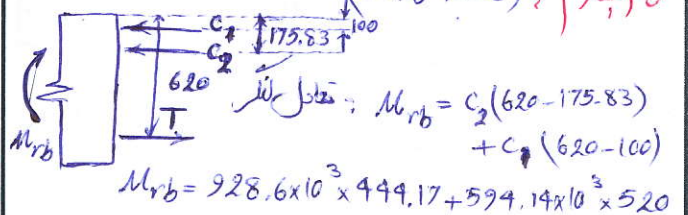 C₁
100
175.83
C₂
620
T
M_rb
تعادل لنگر : M_rb = C₂(620-175.83)
+ C₁ (620-100)
M_rb = 928.6x10³x444.17+594.14x10³x520